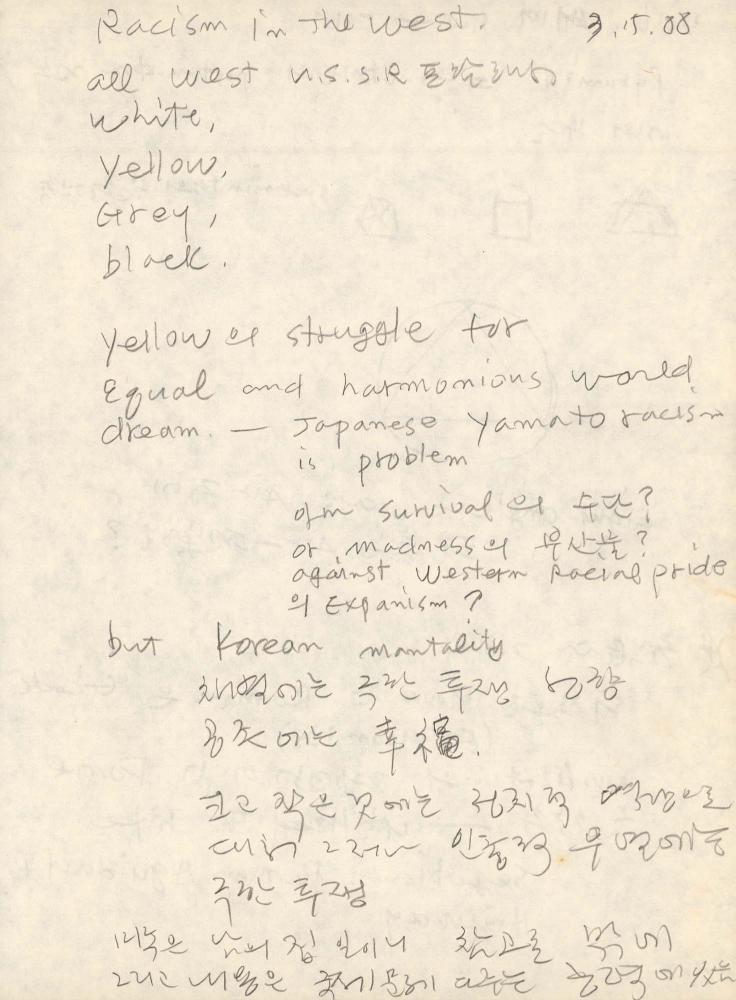 Racism in the West. 3.15.88
all west U.S.S.R 포함해서
White,
Yellow,
Grey,
black.
Yellow 의 struggle for
Equal and harmonious world
dream. — Japanese Yamato racism
is problem
am survival 의 수단?
or madness의 부산물?
against Western Racial pride
의 Expanism?
but Korean mantality
차별에는 극한 투쟁
공조에는 幸福.
크고 작은 것에는 정치적 역량으로
그러나 인종적 우열에는
극한 투쟁
미국은 남의 집 일이니 참고로
그리고 내용은 국제문제 다루는 능력에